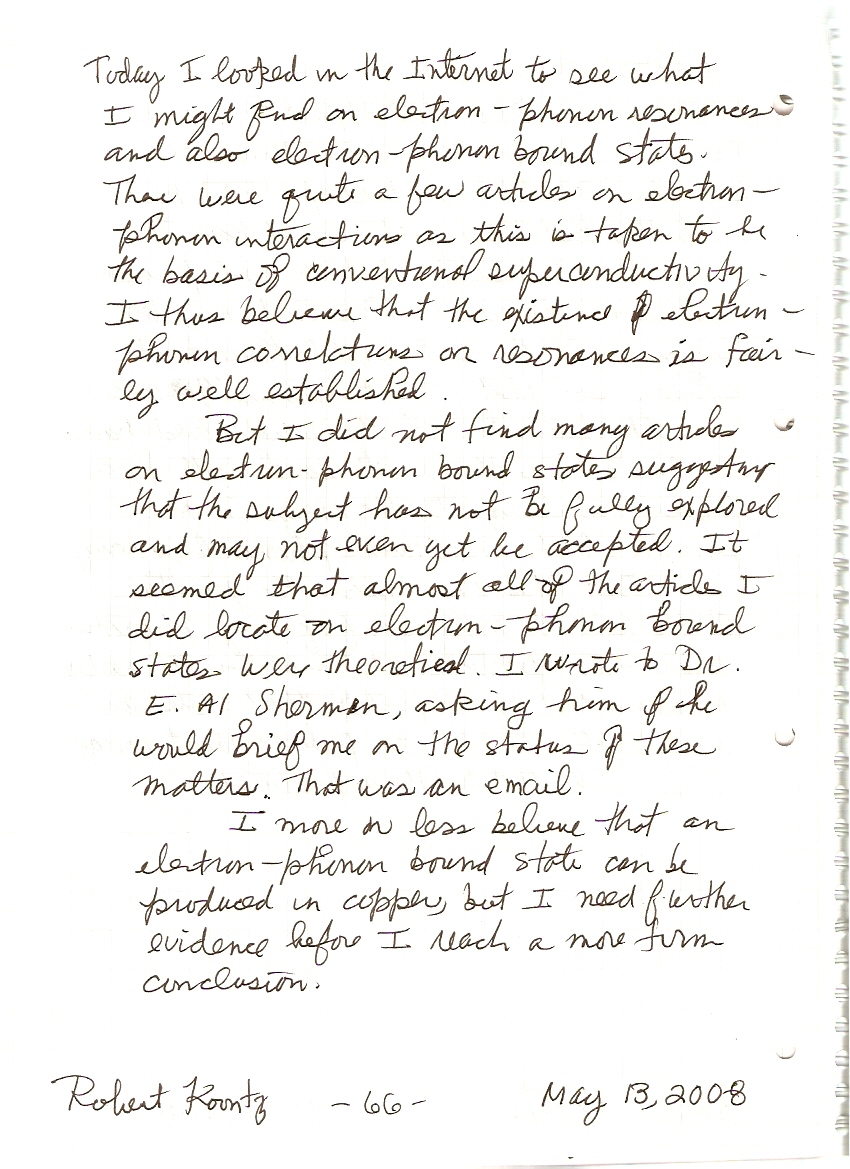 Today I looked in the Internet to see what
I might find on electron-phonon resonances
and also electron-phonon bound states.
There were quite a few articles on electron-
phonon interactions as this is taken to be
the basis of conventional superconductivity.
I thus believe that the existence of electron-
phonon correlations or resonances is fair-
ly well established.
But I did not find many articles
on electron-phonon bound states suggesting
that the subject has not be fully explored
and may not even yet be accepted. It
seemed that almost all of the articles I
did locate on electron-phonon bound
states were theoretical. I wrote to Dr.
E. Al Sherman, asking him if he
would brief me on the status of these
matters. That was an email.
I more or less believe that an
electron-phonon bound state can be
produced in copper, but I need further
evidence before I reach a more firm
conclusion.
Robert Koontz - 66 - May 13, 2008